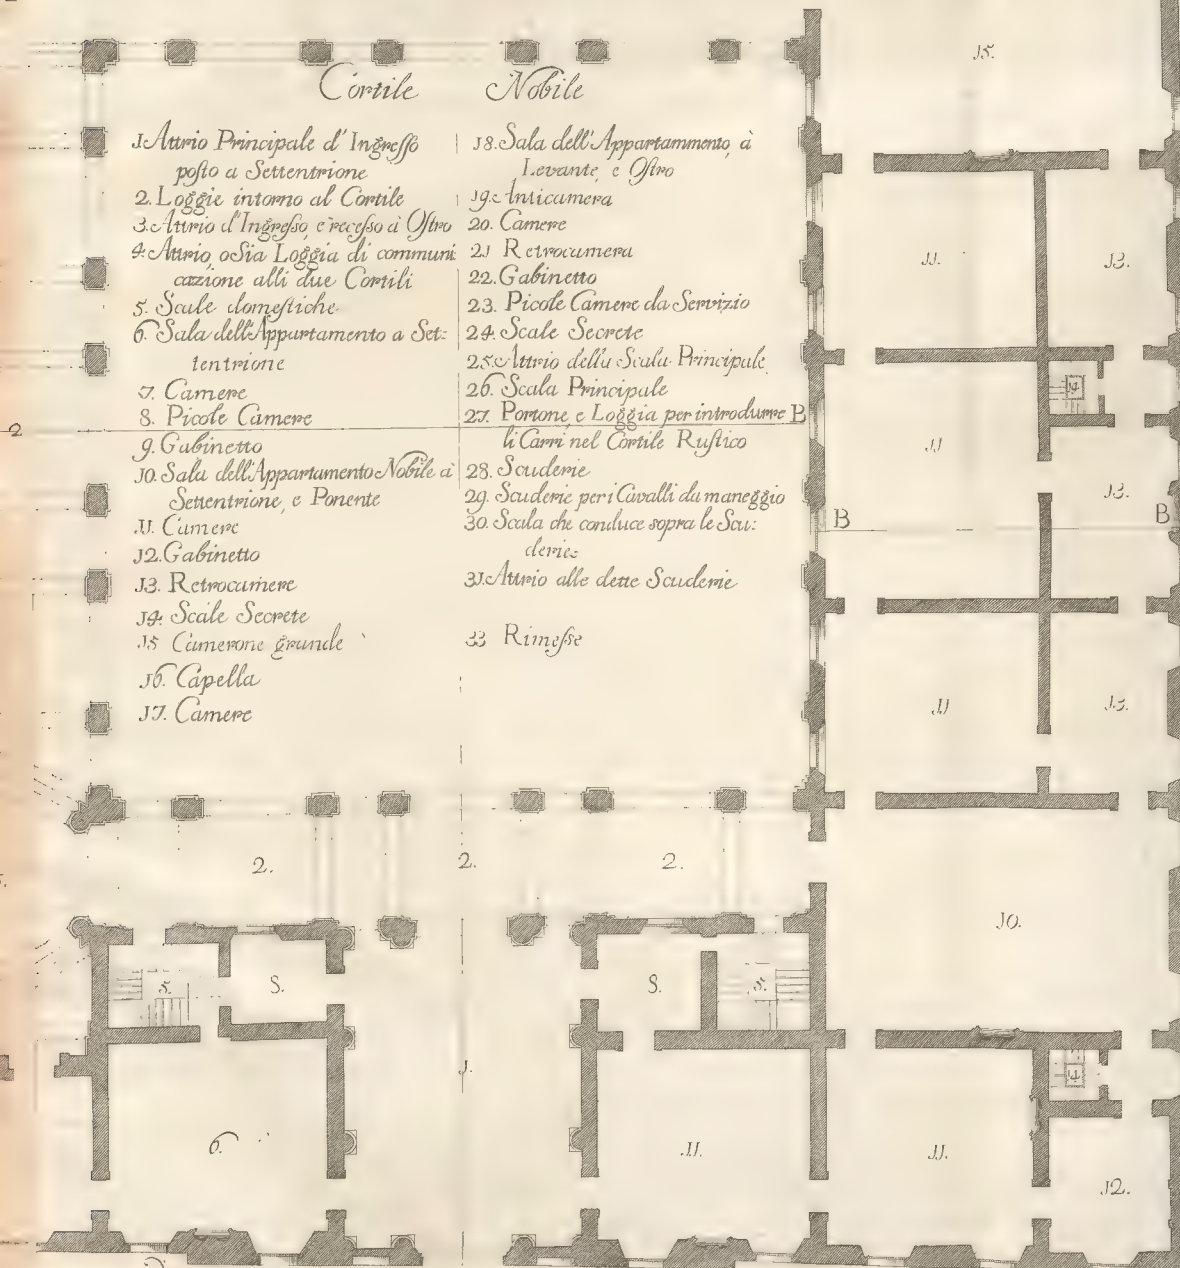 Cortile Nobile
1. Attrio Principale d'Ingreſſo
poſto a Settentrione
2. Loggie intorno al Cortile
3. Attrio d'Ingreſſo, e receſſo à Oſtro
4. Attrio, o Sia Loggia di communi
cazione alli due Cortili
5. Scale domeſtiche
6. Sala dell'Appartamento a Set:
tentrione
7. Camere
8. Picole Camere
9. Gabinetto
10. Sala dell'Appartamento Nobile à
Settentrione, e Ponente
11. Camere
12. Gabinetto
13. Retrocamere
14. Scale Secrete
15 Camerone grande
16. Capella
17. Camere
18. Sala dell'Appartammento, à
Levante, e Oſtro
19. Anticamera
20. Camere
21 Retrocamera
22. Gabinetto
23. Picole Camere da Servizio
24. Scale Secrete
25. Attrio della Scala Principale
26. Scala Principale
27. Portone, e Loggia per introdurre B
li Carri nel Cortile Ruſtico
28. Scuderie
29. Scuderie per i Cavalli da maneggio
30. Scala che conduce sopra le Scu:
derie:
31. Attrio alle dette Scuderie
33 Rimeſse
15.
11.
13.
14
2
11
13.
B
B
11
13.
2.
2.
2.
10.
5.
8.
8.
5.
1.
14
6.
11.
11.
12.